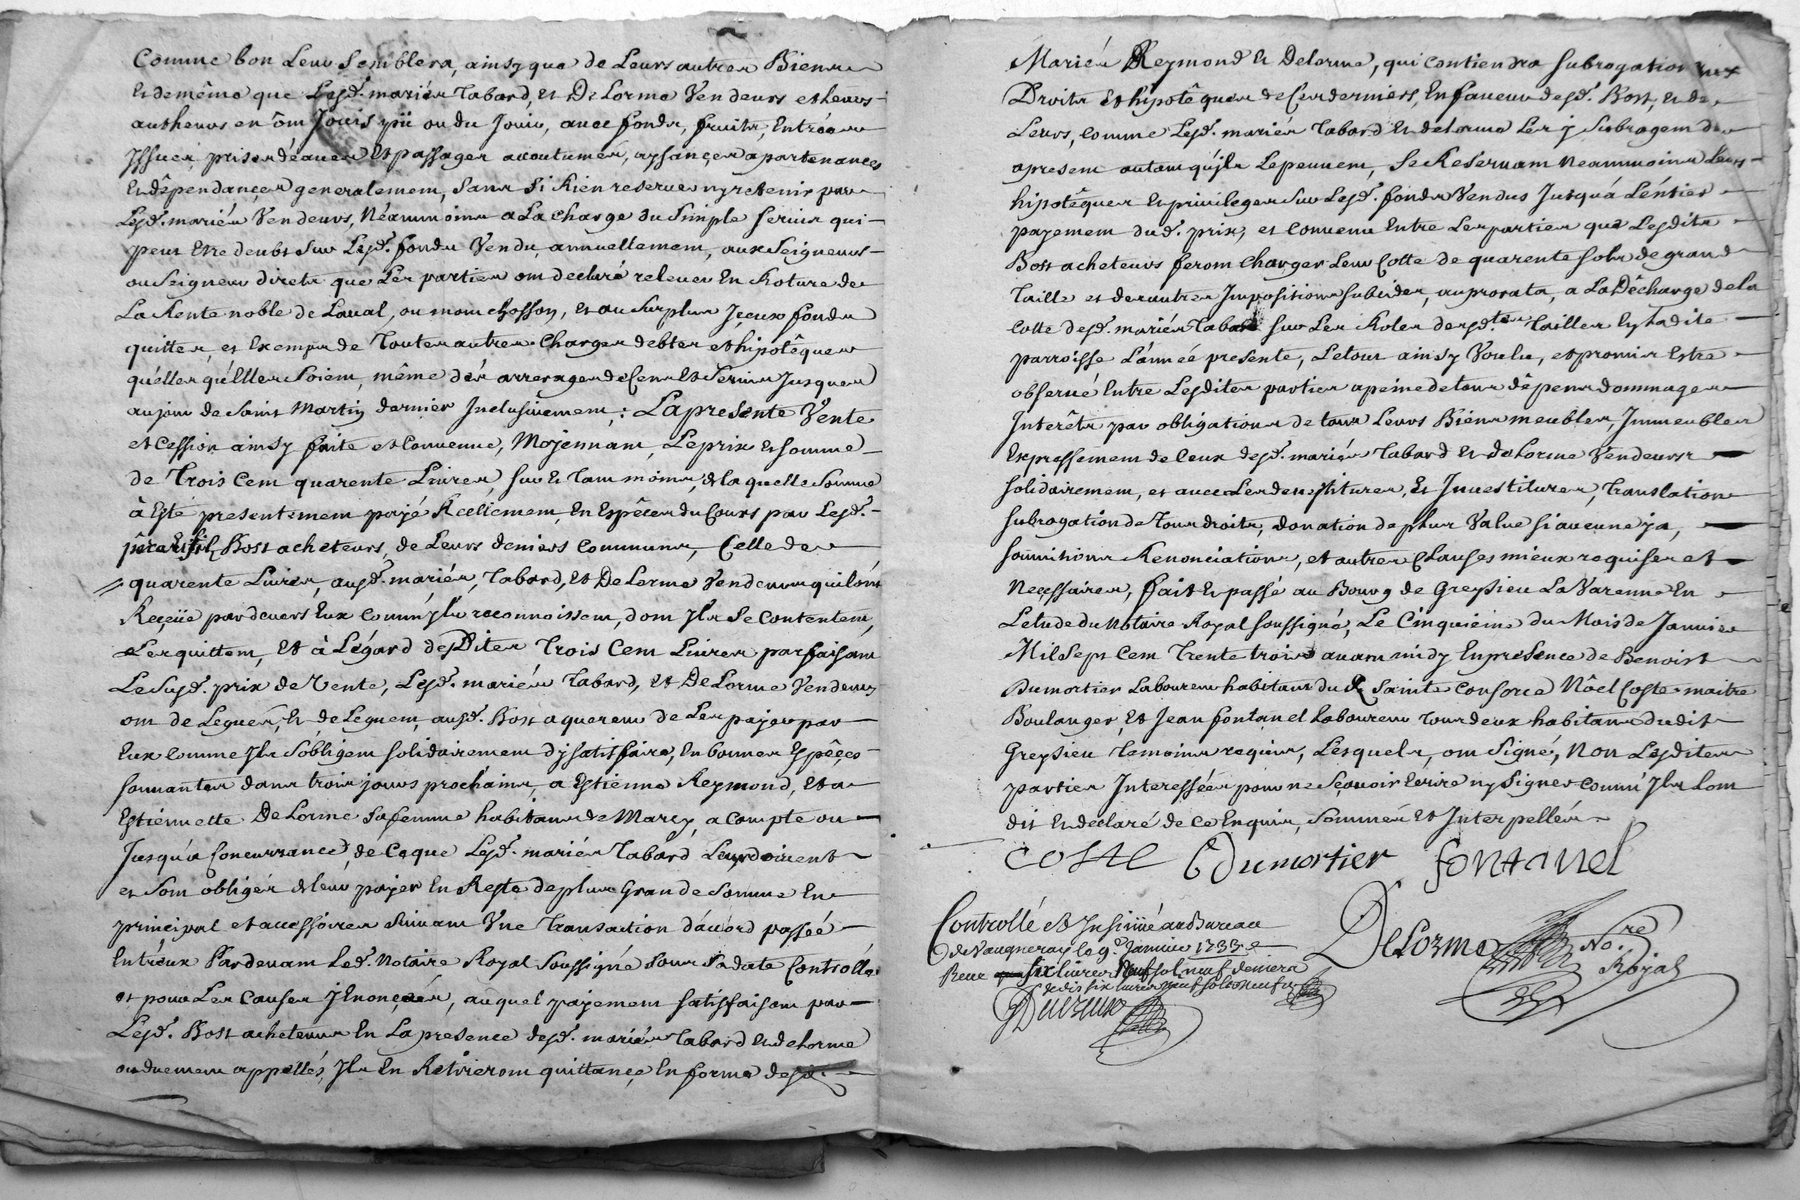 Comme bon Leur Semblera, ainsy que de Leurs autres Biens
Et de même que Lesd. mariés Tabard, et De Lorme Vendeurs et leurs
autheurs en ont Jouis ou du Jouir, avec fonds, fruits, Entrées
Issues, prises d'eaues Et passages accoutumés, aysances apartenances
Et dêpendances generalement, Sans Si Rien reserver ny retenir par
Lesd. mariés Vendeurs, Néammoins a La charge du Simple servis qui
peut Etre deubt Sur Lesd. fonds Vendu annuellement, aux Seigneurs
ou Seigneur directs que Les parties ont declaré relever En Roture de
La Rente noble de Laval, ou mont chosson, et au surplus Iceux fonds
quittes, et Exempts de Toutes autres Charges debtes et hipotêques
qu'elles qu'Elles Soient, même des arrerages de Cens Et Servis Jusques
au jour de Saint Martin dernier Inclusivement; La presente Vente
et Cession ainsy faite et Convenue, Moyennant, Le prix Et somme
de Trois Cent quarente Livres, sur Et Tant moins, de la quelle Somme
à Esté presentement payé Reellement, En Espêces du Cours par Lesd.
père et fils Bost acheteurs, de Leurs deniers Communs, Celle de
quarente Livres, ausd. mariés, Tabard, Et De Lorme Vendeurs qui lont
Reçeüe pardevers Eux comm'Ils reconnoissent, dont Ils Se Contentent,
Les quittent, Et à L'égard desdites Trois Cent Livres parfaisant
Le Susd. prix de Vente, Lesd. mariés Tabard, Et De Lorme Vendeurs
ont de Legués, Et de Leguent, ausd. Bost aquereurs de Les payer par
Eux Comme Ils S'obligent solidairement d'y satisfaire, En bonnes Espêces
sonnantes dans trois jours prochains, a Estienne Reymond, Et a
Estiennette De Lorme Sa femme habitans de Marcy, a compte ou
Jusqu'a Concurrance, de Ce que Lesd. mariés Tabard Leurs doivent
et Sont obligés de leur payer En Reste de plus Grande Somme En
principal et accessoires suivant Une Transaction d'acord passée
Entr'eux Pardevant Led. Notaire Royal Soussigné Sous Sa date Controllée
et pour Les Causes y Enoncées, auquel payement satisfaisant par
Lesd. Bost acheteurs En La presence desd. mariés Tabard Et de Lorme
ou duement appellés, Ils En Retireront quittance En forme desd.
Mariés Reymond Et Delorme, qui Contiendra Subrogation aux
Droits Et hipotêques de Ces derniers, En faveur desd. Bost, Et de
Leurs, Comme Lesd. mariés Tabard Et de Lorme Les y Subrogent des
apresent autant qu'ils Le peuvent, Se Reservant Neammoins Leurs
hipotêques Et privileges Sur Lesd. fonds Vendus Jusqu'à L'entier
payement dud. prix, et Convenu Entre Les parties que Lesdits
Bost acheteurs feront Charger Leur Cotte de quarente Sols de grand
Taille et des autres Impositions Subsides, au prorata, a La Dêcharge de La
Cotte desd. mariés Tabard Sur Les Roles desd.tes Tailles En ladite
parroisse L'année presente, Le tout ainsy Voulu, et promis Estre
observé Entre Lesdites parties a peine de tous dêpens dommages
Interêts par obligations de tous Leurs Biens meubles, Immeubles
Expressement de Ceux desd. mariés Tabard Et de Lorme Vendeurs
solidairement, et avec Les devestitures, Et Investitures, Translation
subrogation de Tous droits, donation de plus Value si aucune y a,
soumitions Renonciations, et autres Clauses mieux requises et
Necessaires, fait Et passé au Bourg de Greysieu La Varenne En
L'etude du Notaire Royal Soussigné, Le Cinquieme du Mois de Janvier
Mil Sept Cent Trente trois avant midy En presence de Benoist
Dumortier Laboureur habitant du Sainte Consorce Nôel Coste maitre
Boulanger, Et Jean fontanel Laboureur tous deux habitans dudit
Greysieu Temoins requis, Lesquels, ont Signé, Non Lesdites
parties Interessées pour ne Sçavoir Ecrire ny Signer comm'Ils Lont
dit Et declaré de ce Enquis, Sommés Et Interpellés
COSTE Dumortier fontanel
Controllé Et Insinué au Bureau
de Vaugneray le 9.e Janvier 1733
Receu six livres neuf sols neuf deniers
De Lorme No.re
Royal